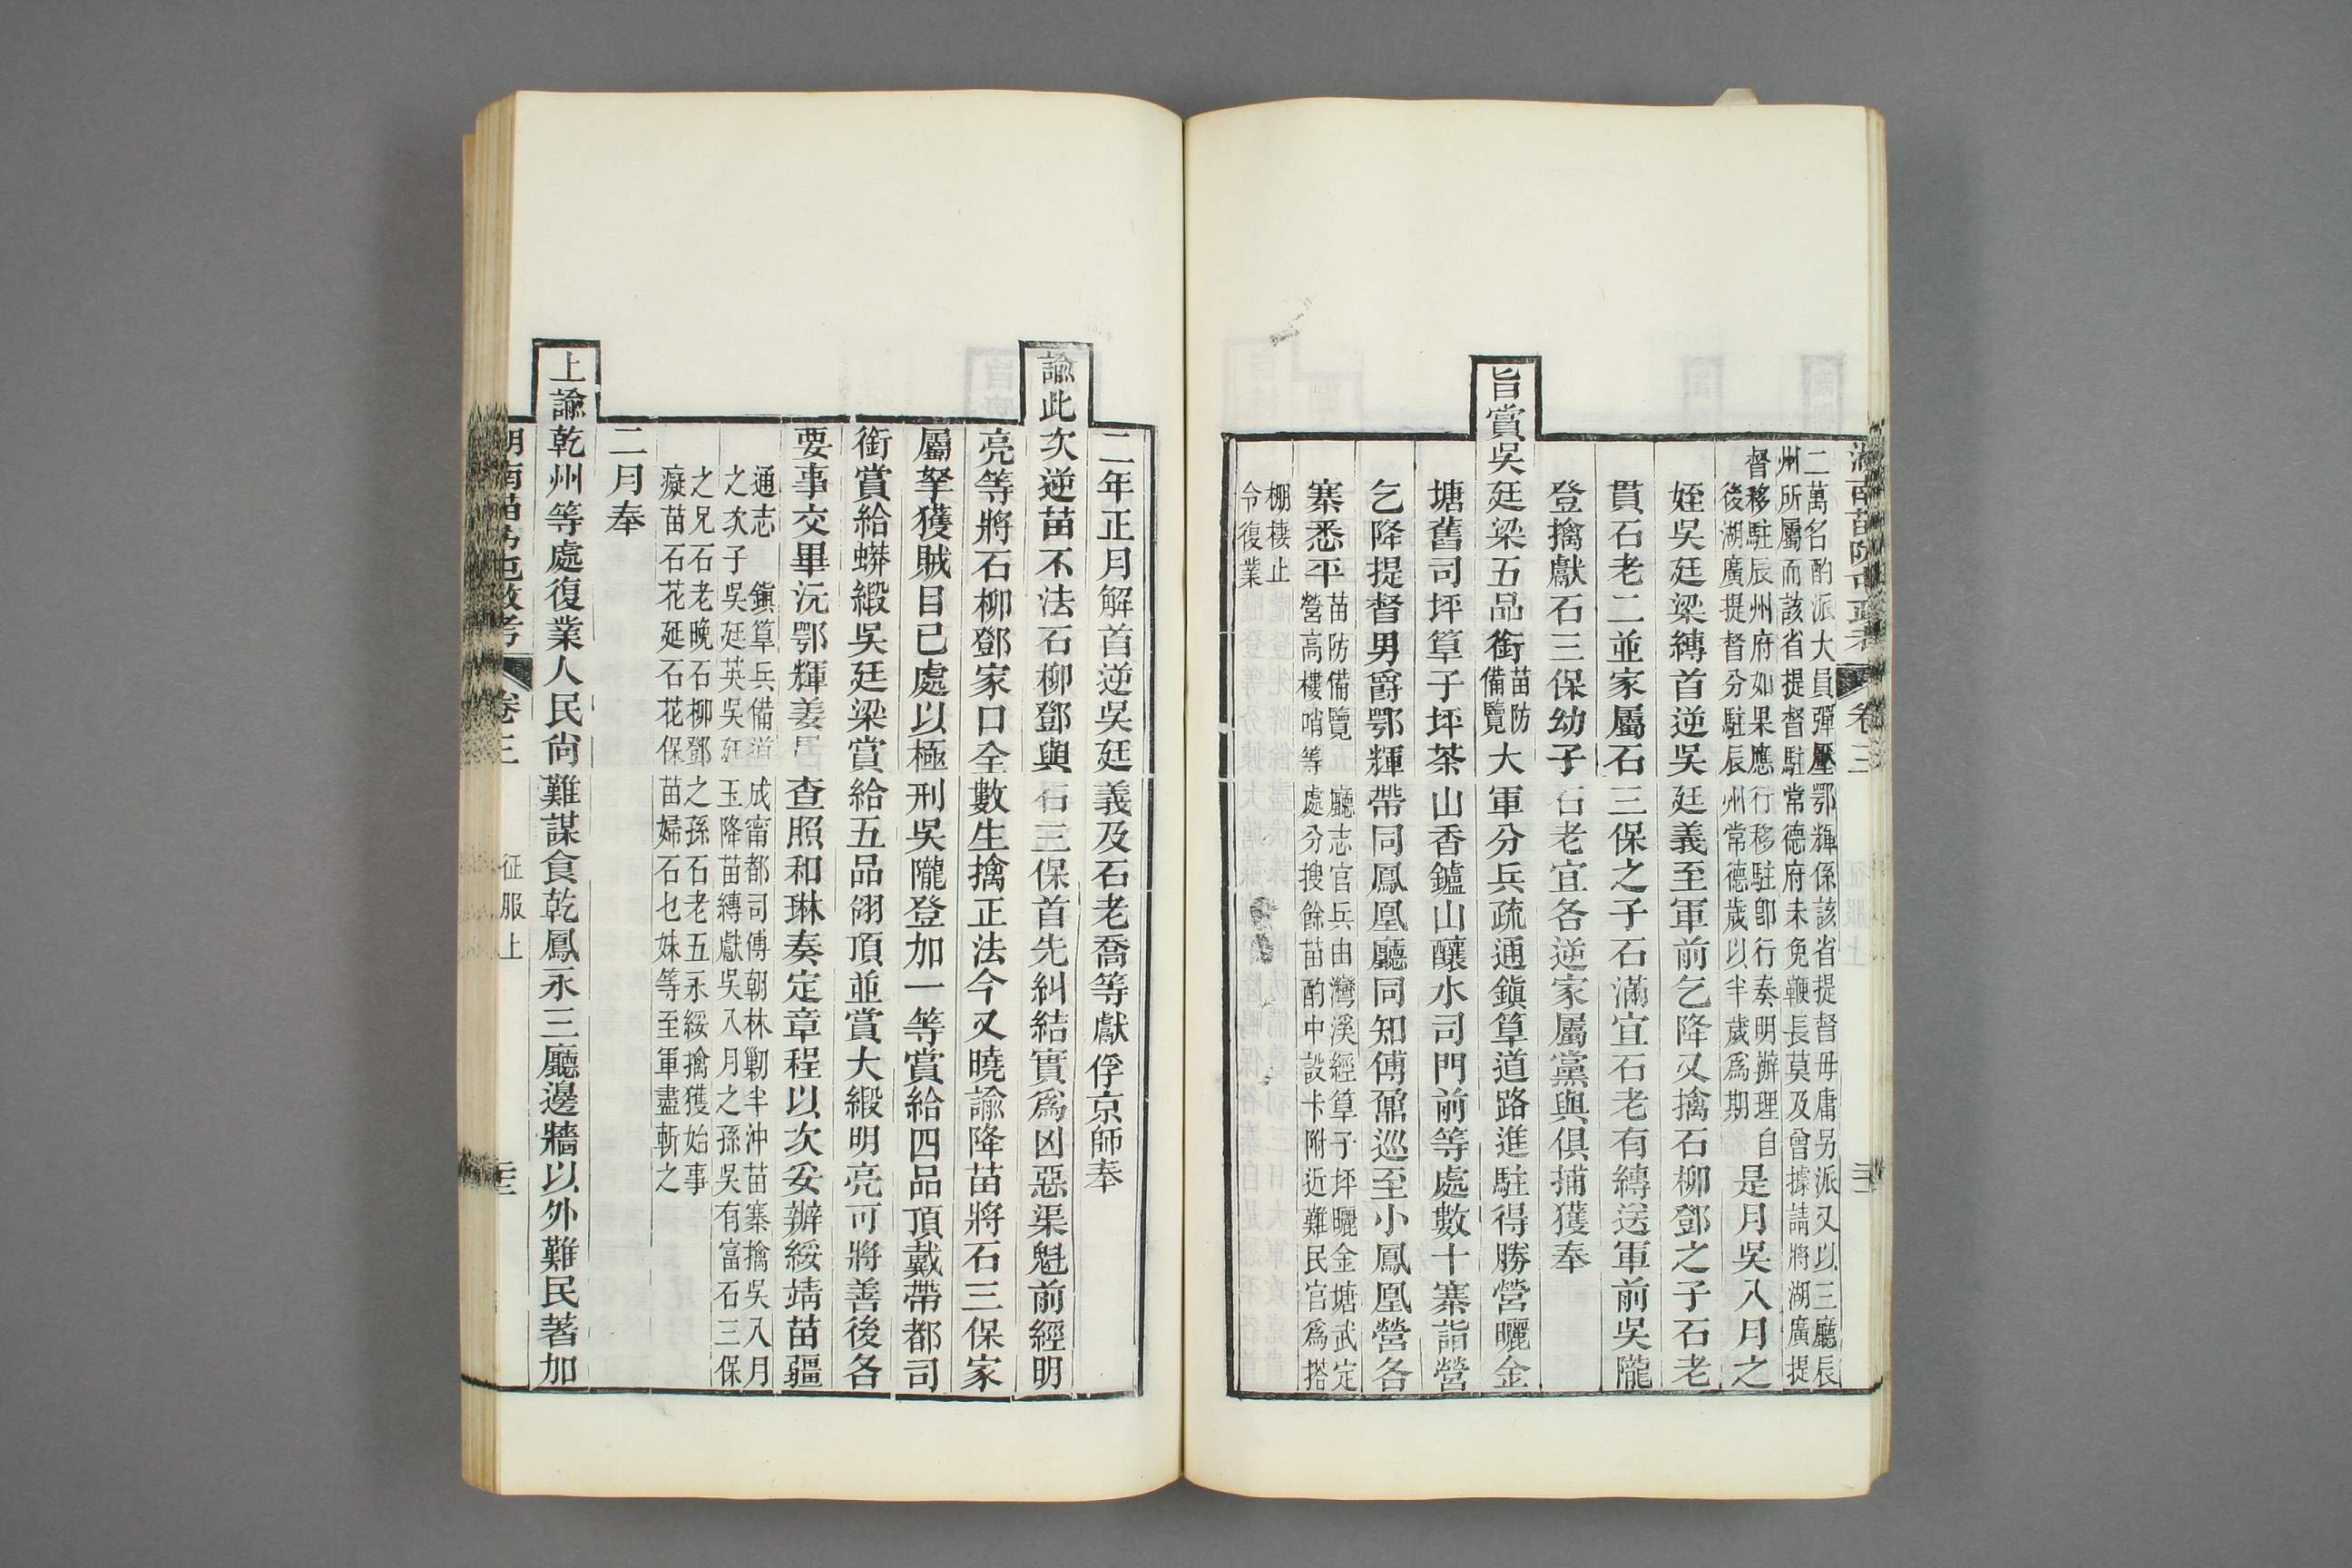 二萬名酌派大員彈壓鄂輝係該省提督毋庸另派又以三廳辰
州所屬而該省提督駐常德府未免鞭長莫及曾據請將湖廣提
督移駐辰州府如果應行移駐卽行奏明辦理自
後湖廣提督分駐辰州常德歲以半歲爲期
是月吳八月之
姪吳廷梁縛首逆吳廷義至軍前乞降又擒石柳鄧之子石老
貫石老二並家屬石三保之子石滿宜石老有縛送軍前吳隴
登擒獻石三保幼子石老宜各逆家屬黨與俱捕獲奉
旨賞吳廷梁五品銜
苗防
備覽
大軍分兵疏通鎭筸道路進駐得勝營曬金
塘舊司坪筸子坪茶山香鑪山釀水司門前等處數十寨詣營
乞降提督男爵鄂輝帶同鳳凰廳同知傅鼐巡至小鳳凰營各
寨悉平
苗防備覽 廳志官兵由灣溪經筸子坪曬金塘武定
營高樓哨等處分搜餘苗酌中設卡附近難民官爲搭
棚棲止
令復業
卷三
二年正月解首逆吳廷義及石老喬等獻俘京師奉
諭此次逆苗不法石柳鄧與石三保首先糾結實爲凶惡渠魁前經明
亮等將石柳鄧家口全數生擒正法今又曉諭降苗將石三保家
屬拏獲賊目已處以極刑吳隴登加一等賞給四品頂戴帶都司
銜賞給蟒緞吳廷梁賞給五品翎頂並賞大緞明亮可將善後各
要事交畢沅鄂輝姜 查照和琳奏定章程以次妥辦綏靖苗疆
通志 鎭筸兵備道 成甯都司傅朝林勦半沖苗寨擒吳八月
之次子吳廷英吳廷玉降苗縛獻吳八月之孫吳有富石三保
之兄石老晚石柳鄧之孫石老五永綏擒獲始事
癡苗石花延石花保苗婦石乜妹等至軍盡斬之
二月奉
上諭乾州等處復業人民尙難謀食乾鳳永三廳邊牆以外難民著加
湖南苗防屯政考 卷三 征服上